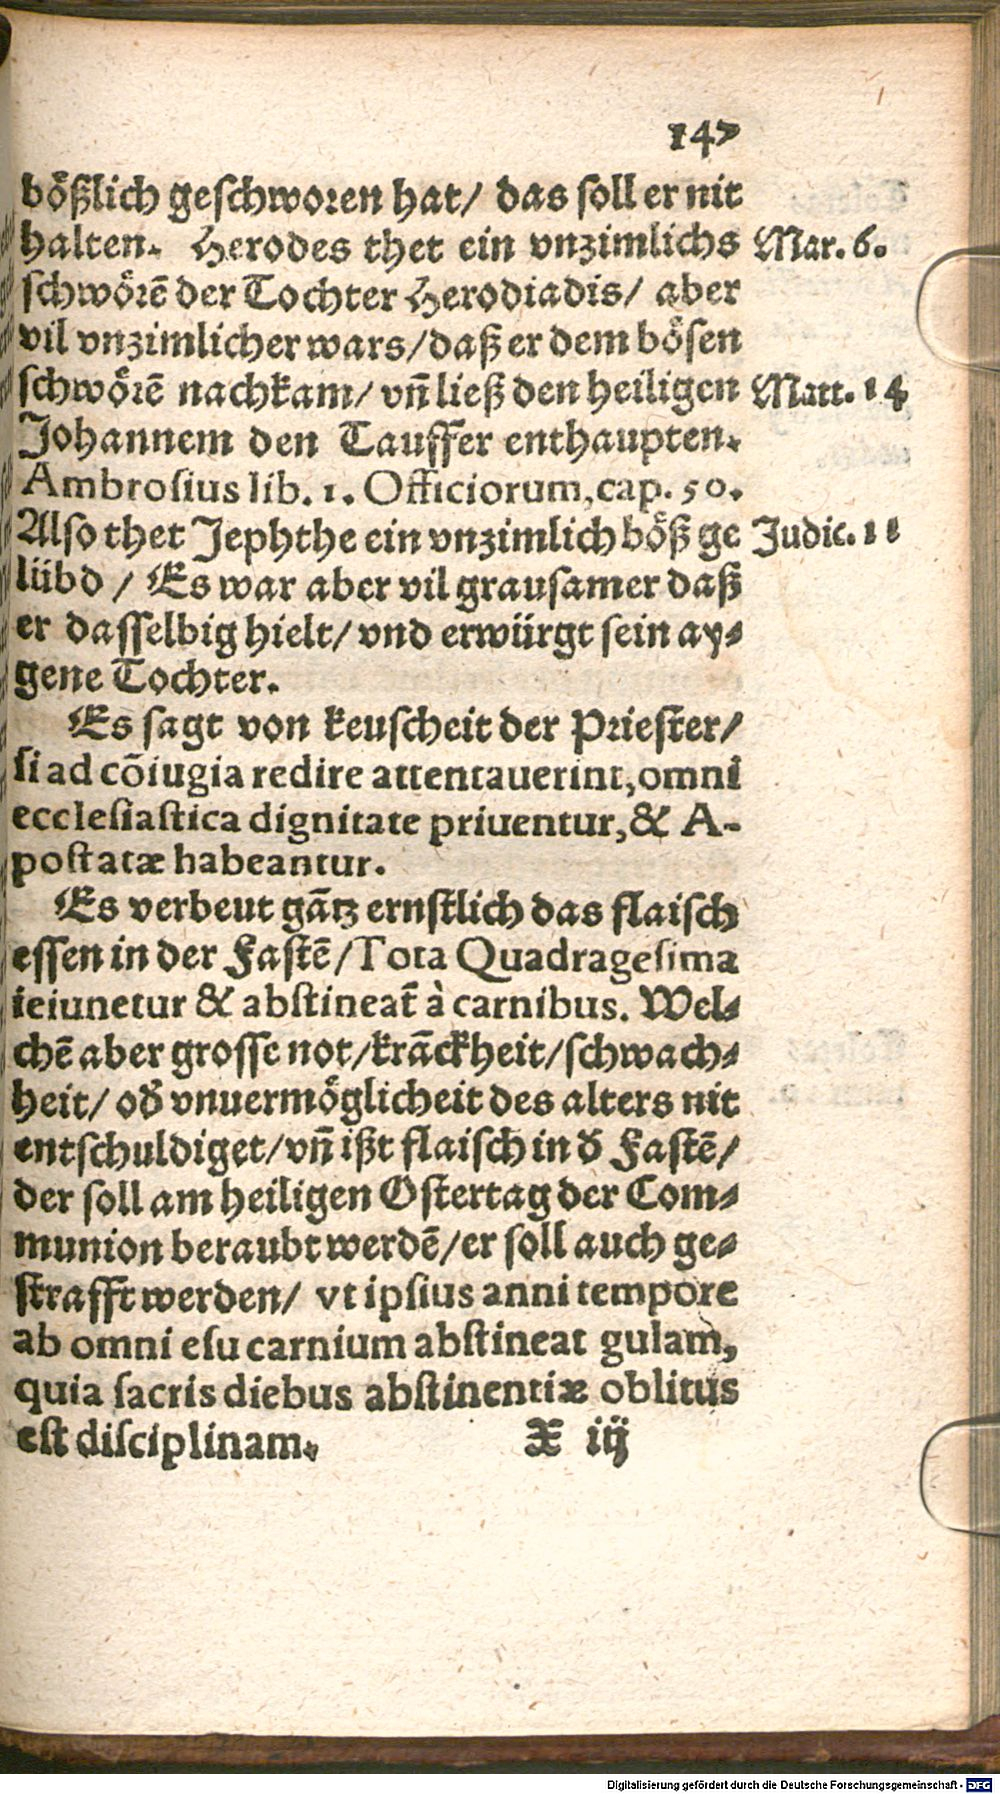 147
bößlich geschworen hat/ das soll er nit
halten. Herodes thet ein vnzimlichs
Mar. 6.
schwörē der Tochter Herodiadis/ aber
vil vnzimlicher wars/daß er dem bösen
schwörē nachkam/ vñ ließ den heiligen
Matt. 14
Johannem den Tauffer enthaupten.
Ambrosius lib. 1. Officiorum, cap. 50.
Also thet Jephthe ein vnzimlich böß ge
Judic. 11
lübd / Es war aber vil grausamer daß
er dasselbig hielt/ vnd erwürgt sein ay⸗
gene Tochter.
Es sagt von keuscheit der Priester/
si ad cōiugia redire attentauerint, omni
ecclesiastica dignitate priuentur, & A-
postatæ habeantur.
Es verbeut gātz ernstlich das flaisch
essen in der Fastē/Tota Quadragesima
ieiunetur & abstineat̃ à carnibus. Wel⸗
chē aber grosse not/krāckheit/schwach⸗
heit/ od̕ vnuermöglicheit des alters nit
entschuldiget/vñ ißt flaisch in d̕ Fastē/
der soll am heiligen Ostertag der Com⸗
munion beraubt werdē/er soll auch ge⸗
strafft werden/ vt ipsius anni tempore
ab omni esu carnium abstineat gulam,
quia sacris diebus abstinentiæ oblitus
est disciplinam.
X iij
Digitalisierung gefördert durch die Deutsche Forschungsgemeinschaft - DFG